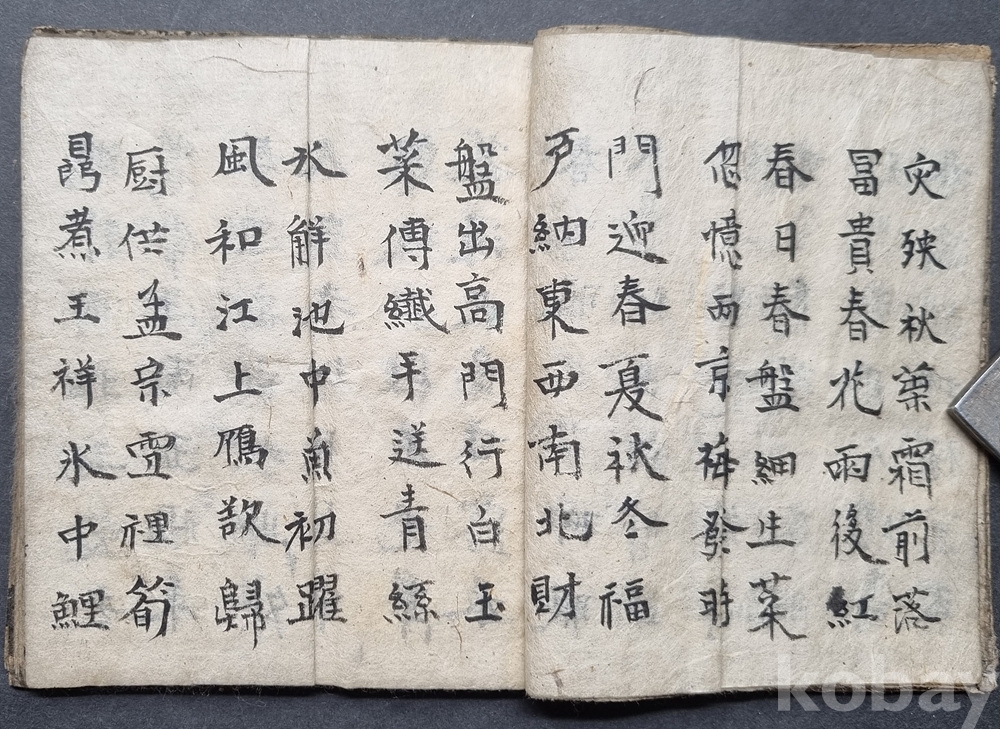 灾殃秋葉霜前落
冨貴春花雨後紅
春日春盤細生菜
忽憶兩京梅發時
門迎春夏秋冬福
戶納東西南北財
盤出高門行白玉
菜傳纖手送青絲
氷觧池中魚初躍
風和江上鴈欲歸
厨供孟宗雪裡筍
煮王祥氷中鯉
kobay